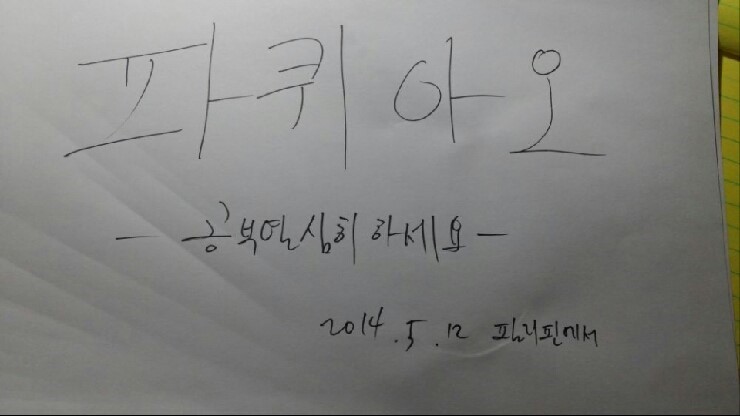 파퀴아오
- 공부열심히하세요 -
2014.5.12 필리핀에서